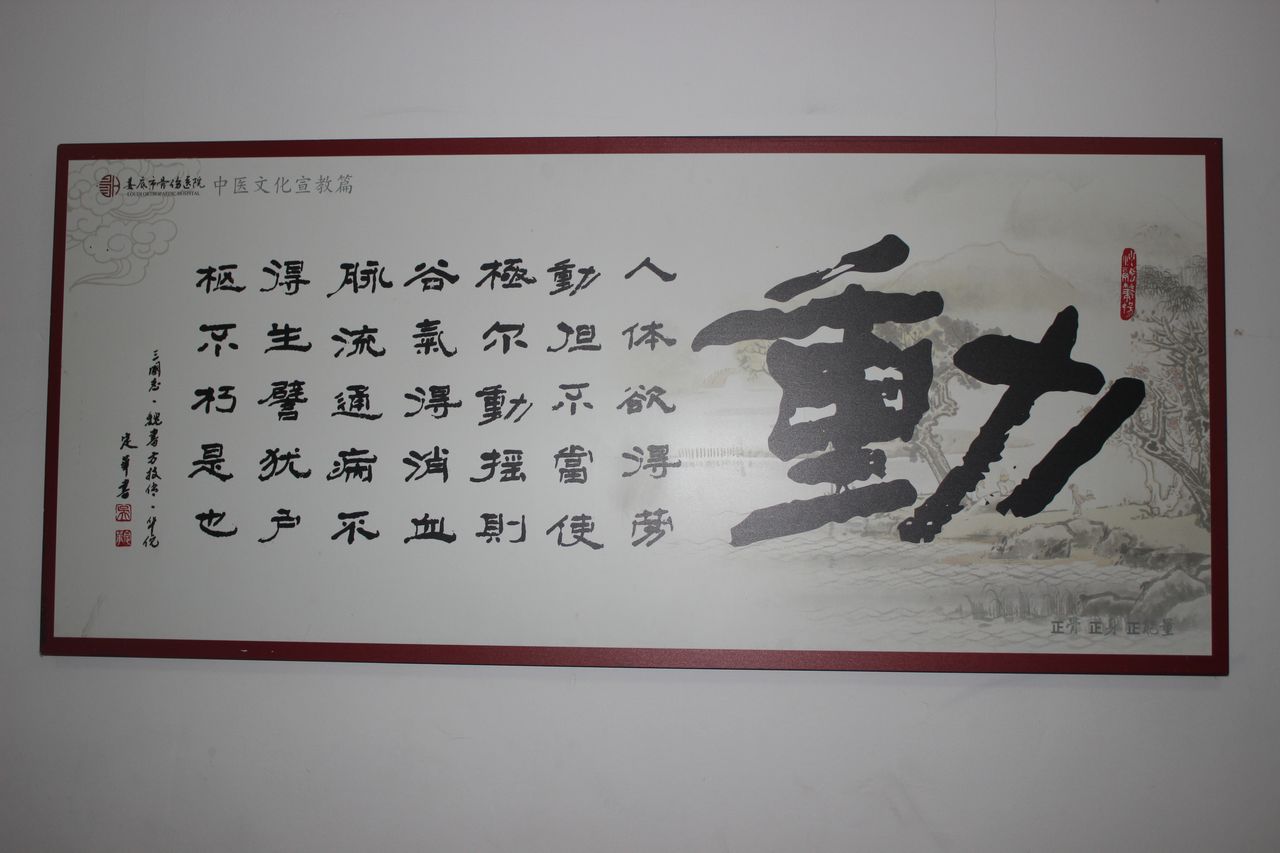 娄底市骨伤医院 中医文化宣教篇
LOUDI ORTHOPAEDIC HOSPITAL
動
人体欲得劳
動但不當使
極尔動摇則
谷氣得消血
脉流通病不
得生譬犹户
枢不朽是也
三國志·魏書方技传·华佗
定華書
正骨 正身 正能量